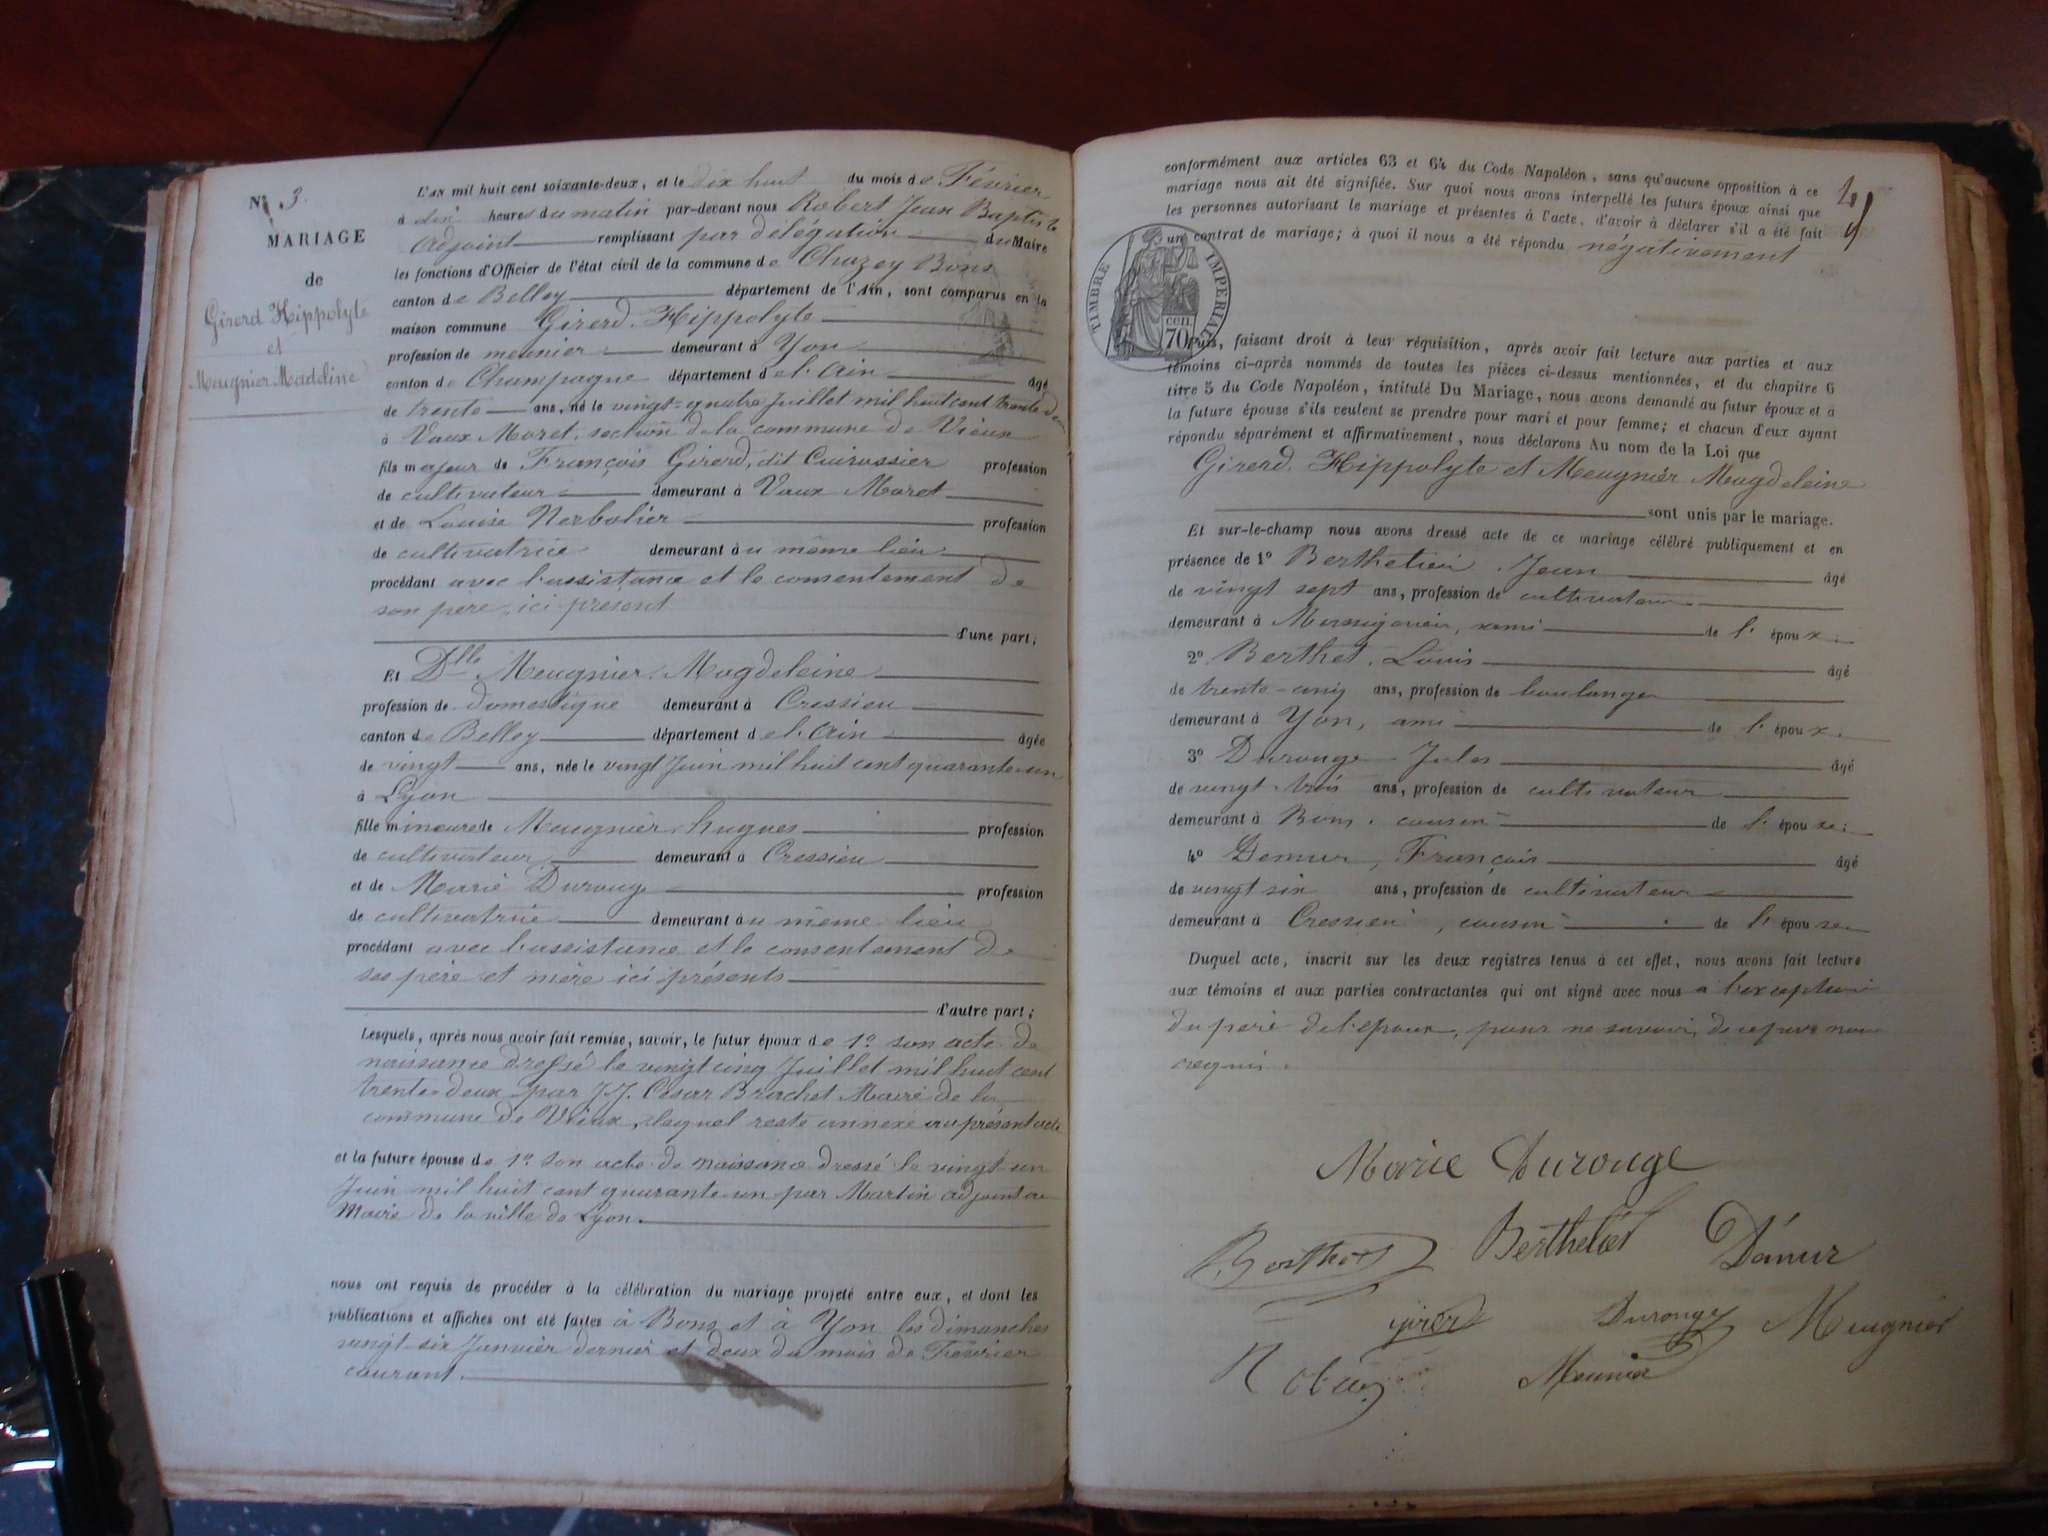 N° 3.
MARIAGE
de
Girerd Hippolyte
et
Meugnier Madeline
L'AN mil huit cent soixante-deux, et le dix huit du mois de Février
à dix heures du matin par-devant nous Robert Jean Baptiste
Adjoint remplissant par délégation du Maire
les fonctions d'Officier de l'état civil de la commune de Chazey Bons
canton de Belley département de l'Ain, sont comparus en la
maison commune Girerd. Hippolyte
profession de meunier demeurant à Yon
canton de Champagne département de l'Ain âgé
de trente ans, né le vingt-quatre Juillet mil huit cent trente deux
à Vaux Moret, section de la commune de Vieux
fils majeur de François Girerd, dit Cuirassier profession
de cultivateur demeurant à Vaux Moret
et de Louise Nerbolier profession
de cultivatrice demeurant au même lieu
procédant avec l'assistance et le consentement de
son père, ici présent
d'une part;
Et Dlle Meugnier. Magdeleine
profession de domestique demeurant à Cressieu
canton de Belley département de l'Ain âgée
de vingt ans, née le vingt Juin mil huit cent quarante-un
à Lyon
fille mineure de Meugnier hugues profession
de cultivateur demeurant à Cressieu
et de Marie Durouge profession
de cultivatrice demeurant au même lieu
procédant avec l'assistance et le consentement de
ses père et mère ici présents
d'autre part;
Lesquels, après nous avoir fait remise, savoir, le futur époux de 1° son acte de
naissance dressé le vingt cinq Juillet mil huit cent
trente-deux par J.J. César Brachet Maire de la
commune de Vieux, lequel reste annexé au présent acte
et la future épouse de 1° son acte de naissance dressé le vingt-un
Juin mil huit cent quarante-un par Martin adjoint au
Maire de la ville de Lyon.
nous ont requis de procéder à la célébration du mariage projeté entre eux, et dont les
publications et affiches ont été faites à Bons et à Yon les dimanches
vingt-six Janvier dernier et deux du mois de Février
courant.
conformément aux articles 63 et 64 du Code Napoléon, sans qu'aucune opposition à ce
mariage nous ait été signifiée. Sur quoi nous avons interpellé les futurs époux ainsi que
les personnes autorisant le mariage et présentes à l'acte, d'avoir à déclarer s'il a été fait
un contrat de mariage; à quoi il nous a été répondu négativement
TIMBRE IMPERIAL
CEN. 70
Puis, faisant droit à leur réquisition, après avoir fait lecture aux parties et aux
témoins ci-après nommés de toutes les pièces ci-dessus mentionnées, et du chapitre 6
titre 5 du Code Napoléon, intitulé Du Mariage, nous avons demandé au futur époux et à
la future épouse s'ils veulent se prendre pour mari et pour femme; et chacun d'eux ayant
répondu séparément et affirmativement, nous déclarons Au nom de la Loi que
Girerd. Hippolyte et Meugnier Magdeleine
sont unis par le mariage.
Et sur-le-champ nous avons dressé acte de ce mariage célébré publiquement et en
présence de 1° Berthelier. Jean âgé
de vingt sept ans, profession de cultivateur
demeurant à ami de l'époux.
2° Berthet. Louis âgé
de trente-cinq ans, profession de boulanger
demeurant à Yon, ami de l'époux.
3° Durouge Jules âgé
de vingt-trois ans, profession de cultivateur
demeurant à Bons. cousin de l'épouse.
4° Demur, François âgé
de vingt six ans, profession de cultivateur
demeurant à Cressieu, cousin de l'épouse.
Duquel acte, inscrit sur les deux registres tenus à cet effet, nous avons fait lecture
aux témoins et aux parties contractantes qui ont signé avec nous à l'exception
du père de l'époux, pour ne savoir, de ce par nous
requis.
Marie Durouge
Berthet Berthelier Démur
girerd Durouge Meugnier
Robert Meunier